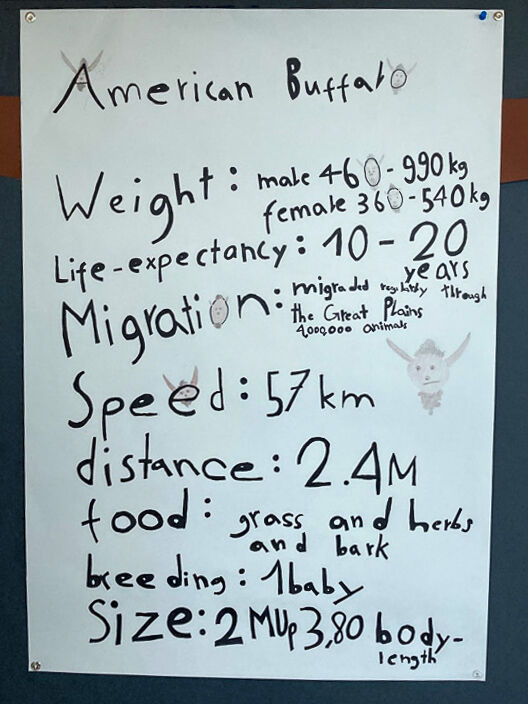 American Buffalo
Weight: male 460-990kg
female 360-540kg
Life-expectancy: 10-20
years
Migration: migraded regularly through
the Great Plains
4000000 animals
Speed: 57 km
distance: 2.4M
food: grass and herbs
and bark
breeding: 1baby
Size: 2 MUp 3,80 body-
length